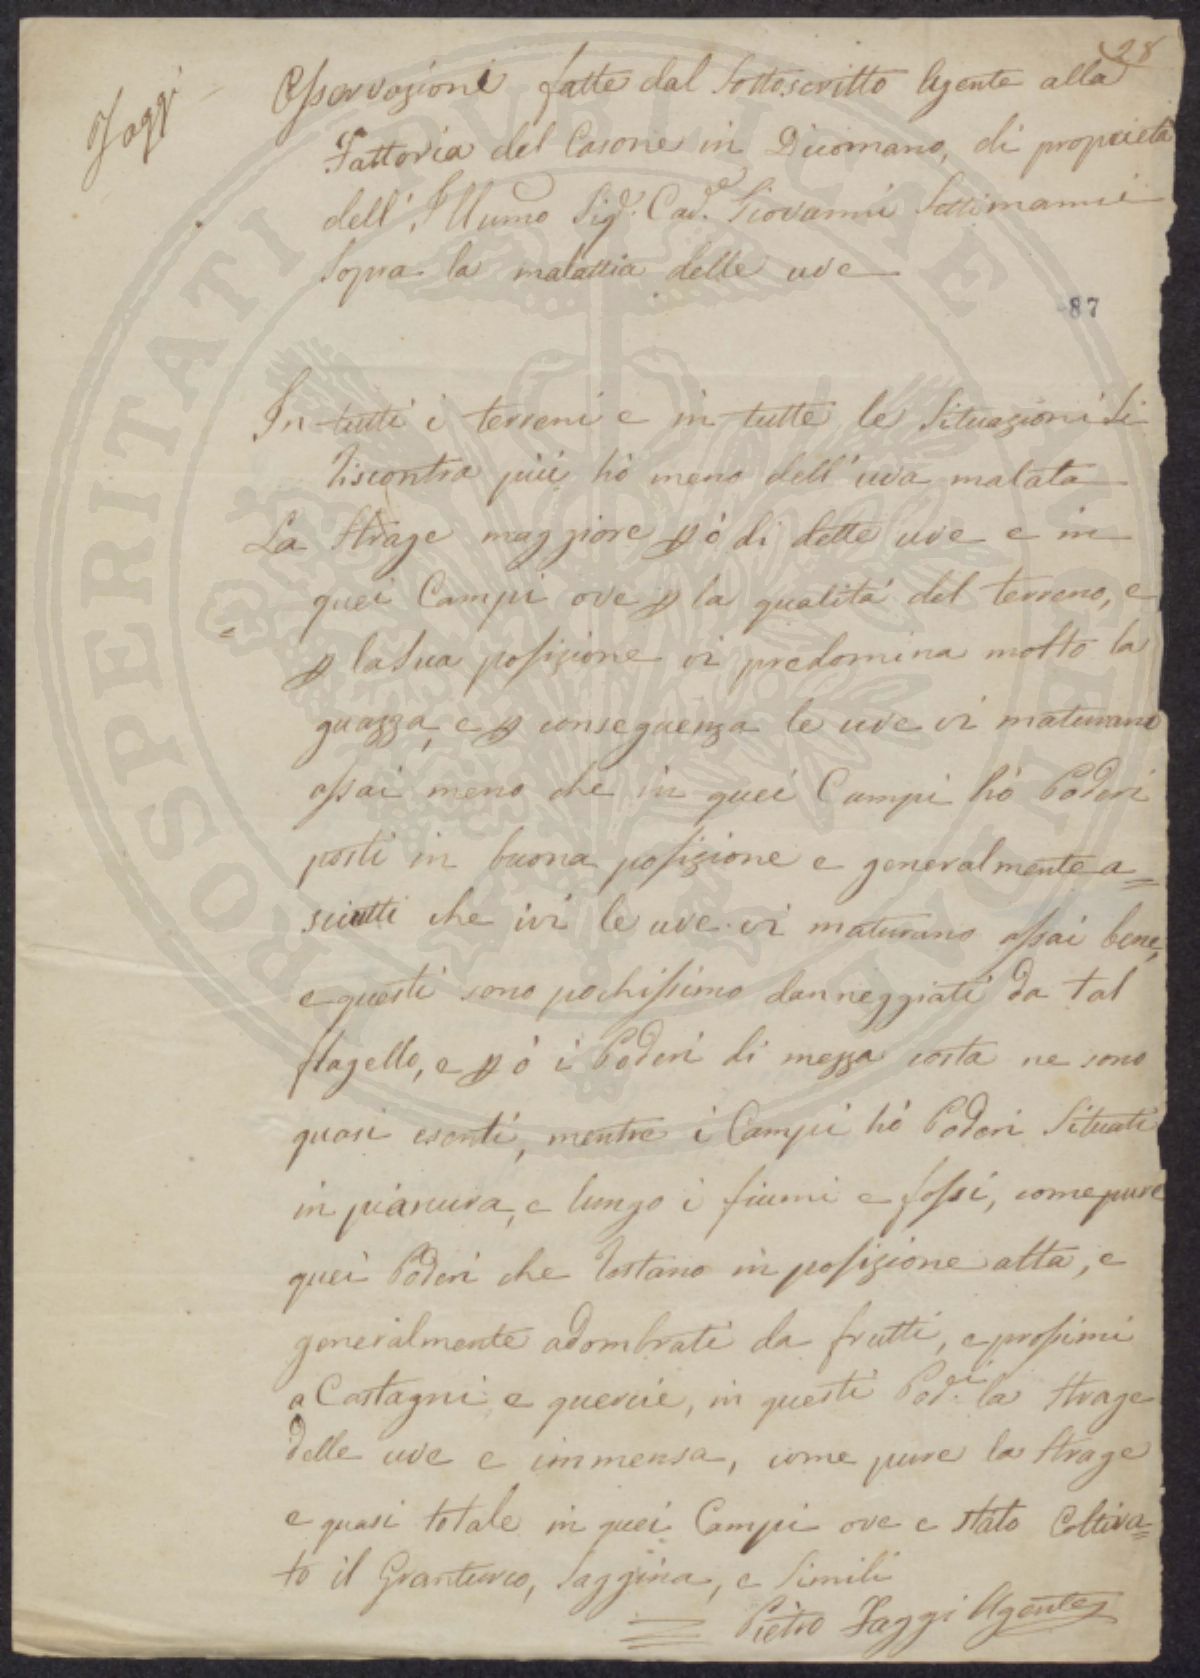 28
Faggi
Osservazioni fatte dal Sottoscritto Agente alla
Fattoria del Casone in Dicomano, di proprietà
dell'Illumo Sigr. Cav. Giovanni Settimanni
Sopra la malattia delle uve
87
In tutti i terreni e in tutte le Situazioni Si
riscontra più hò meno dell'uva malata
La Strage maggiore pò di dette uve e in
quei Campi ove p la qualità del terreno, e
p la Sua posizione vi predomina molto la
guazza, e p conseguenza le uve vi maturano
assai meno che in quei Campi hò Poderi
posti in buona posizione e generalmente a=
sciutti che ivi le uve vi maturano assai bene,
e questi sono pochissimo danneggiati da tal
flagello, e pò i Poderi di mezza costa ne sono
quasi esenti, mentre i Campi hò Poderi Situati
in pianura, e lungo i fiumi e fossi, come pure
quei Poderi che restano in posizione alta, e
generalmente adombrati da frutti, e prossimi
a Castagni e quercie, in questi Pod.i la Strage
delle uve e immensa, come pure la Strage
e quasi totale in quei Campi ove e stato Coltiva=
to il Granturco, Saggina, e Simili
Pietro Faggi Agente
PROSPERITATI PUBLICAE AUGENDAE